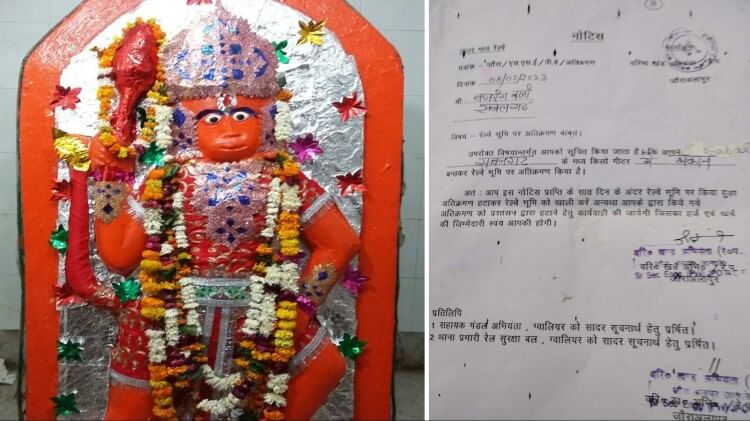 नोटिस
मध्य रेल्वे
पत्रांक जौरा/एस.एस.ई/पी.वे/अतिक्रमण
वरिष्ठ खंड
जौराअलापुर
दिनांक 08/02/2023
श्री बजरंग बली
सबलगढ़
विषय - रेल्वे भूमि पर अतिक्रमण बाबत्।
उपरोक्त विषयान्तर्गत आपको सूचित किया जाता है कि आपने
सबलगढ़ के मध्य किलो मीटर में मकान
बनाकर रेल्वे भूमि पर अतिक्रमण किया है।
अतः आप इस नोटिस प्राप्ति के सात दिन के अंदर रेल्वे भूमि पर किया हुआ
अतिक्रमण हटाकर रेल्वे भूमि को खाली करें अन्यथा आपके द्वारा किये गये
अतिक्रमण को प्रशासन द्वारा हटाने हेतु कार्यवाही की जायेगी जिसका हर्जे एवं खर्चे
की जिम्मेदारी स्वंय आपकी होगी।
वरि० खण्ड अभियंता
वरि० खंड अभि०
जौराअलापुर
प्रतिलिपि
1 सहायक मंडल अभियंता, ग्वालियर को सादर सूचनार्थ हेतु प्रर्षित।
2 थाना प्रभारी रेल सुरक्षा बल, ग्वालियर को सादर सूचनार्थ हेतु प्रर्षित।
वरि० खण्ड अभियंता
जौराअलापुर